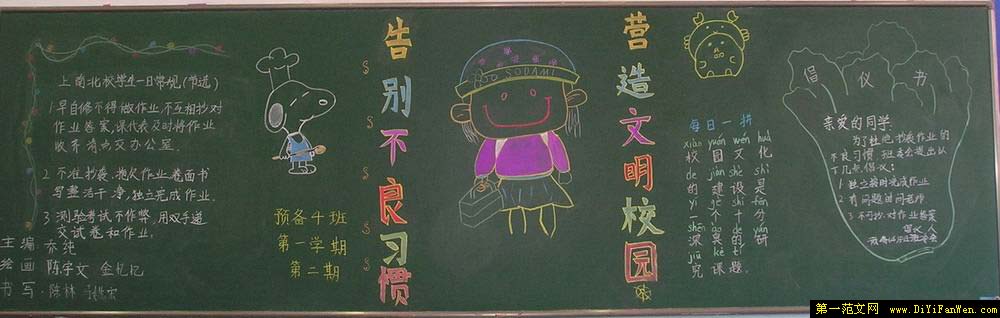 上南北校学生一日常规(节选)
1.早自修不得做作业,不互相抄对
作业答案,课代表及时将作业
收齐清点交办公室.
2.不准抄袭、拖欠作业,卷面书
写整洁干净,独立完成作业.
3.测验考试不作弊,用双手递
交试卷和作业.
主编
绘画 陈宇文
书写.陈林
预备4班
第一学期
第二期
告别不良习惯
SODAM
营造文明校园
每日一拼
xiào yuán wén huà
校园文化
de jiàn shè shì
的建设是
yí gè shí fēn
一个十分
shēn de yán
深奥的研
jiū kè tí
究课题.
倡议书
亲爱的同学:
为了杜绝抄袭作业的
不良习惯,班委会提出以
下几点倡议:
1 独立按时完成作业
2 有问题请问老师
3 不可抄对作业答案
倡议人
第一范文网 www.DiYiFanWen.com